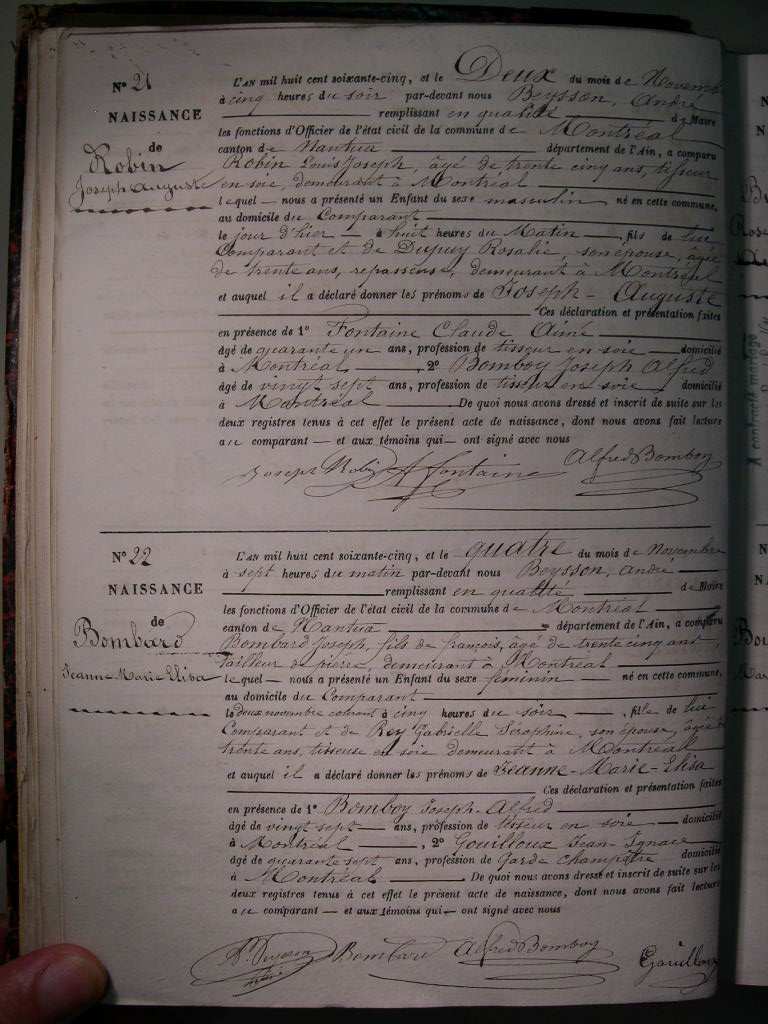 N° 21
NAISSANCE
de
Robin
Joseph Auguste
L'AN mil huit cent soixante-cinq, et le Deux du mois de Novemb
à cinq heures du soir par-devant nous Beysson, André
remplissant en qualité de Maire
les fonctions d'Officier de l'état civil de la commune de Montréal
canton de Nantua département de l'Ain, a comparu
Robin Louis Joseph, âgé de trente cinq ans, tisseur
en soie, demeurant à Montréal
lequel — nous a présenté un Enfant du sexe masculin né en cette commune,
au domicile du Comparant
le jour d'hier — à huit heures du Matin —, fils de lui
Comparant et de Dupuy Rosalie, son épouse, âgée
de trente ans, repasseuse, demeurant à Montréal
et auquel il a déclaré donner les prénoms de Joseph-Auguste
Ces déclaration et présentation faites
en présence de 1° Fontaine Claude Aimé
âgé de quarante un ans, profession de tisseur en soie — domicilié
à Montréal —, 2° Bomboy Joseph Alfred
âgé de vingt sept ans, profession de tisseur en soie domicilié
à Montréal — De quoi nous avons dressé et inscrit de suite sur les
deux registres tenus à cet effet le présent acte de naissance, dont nous avons fait lecture
au comparant — et aux témoins qui — ont signé avec nous
Joseph Robin A Fontaine Alfred Bomboy
N° 22
NAISSANCE
de
Bombard
Jeanne Marie Elisa
L'AN mil huit cent soixante-cinq, et le quatre du mois de Novembre
à sept heures du matin par-devant nous Beysson, André
remplissant en qualité de Maire
les fonctions d'Officier de l'état civil de la commune de Montréal
canton de Nantua département de l'Ain, a comparu
Bombard Joseph, fils de françois, âgé de trente cinq ans,
tailleur de pierre, demeurant à Montréal
lequel — nous a présenté un Enfant du sexe feminin — né en cette commune,
au domicile du Comparant
le deux novembre courant à cinq heures du soir —, fille de lui
Comparant et de Rey Gabrielle Séraphine, son épouse, âgée de
trente ans, tisseuse en soie demeurant à Montréal
et auquel il a déclaré donner les prénoms de Jeanne-Marie-Elisa
Ces déclaration et présentation faites
en présence de 1° Bomboy Joseph-Alfred
âgé de vingt sept — ans, profession de tisseur en soie — domicilié
à Montréal —, 2° Gouilloux Jean-Ignace
âgé de quarante sept ans, profession de Garde champêtre domicilié
à Montréal — De quoi nous avons dressé et inscrit de suite sur les
deux registres tenus à cet effet le présent acte de naissance, dont nous avons fait lecture
au comparant — et aux témoins qui — ont signé avec nous
Bombard Alfred Bomboy Gouilloux